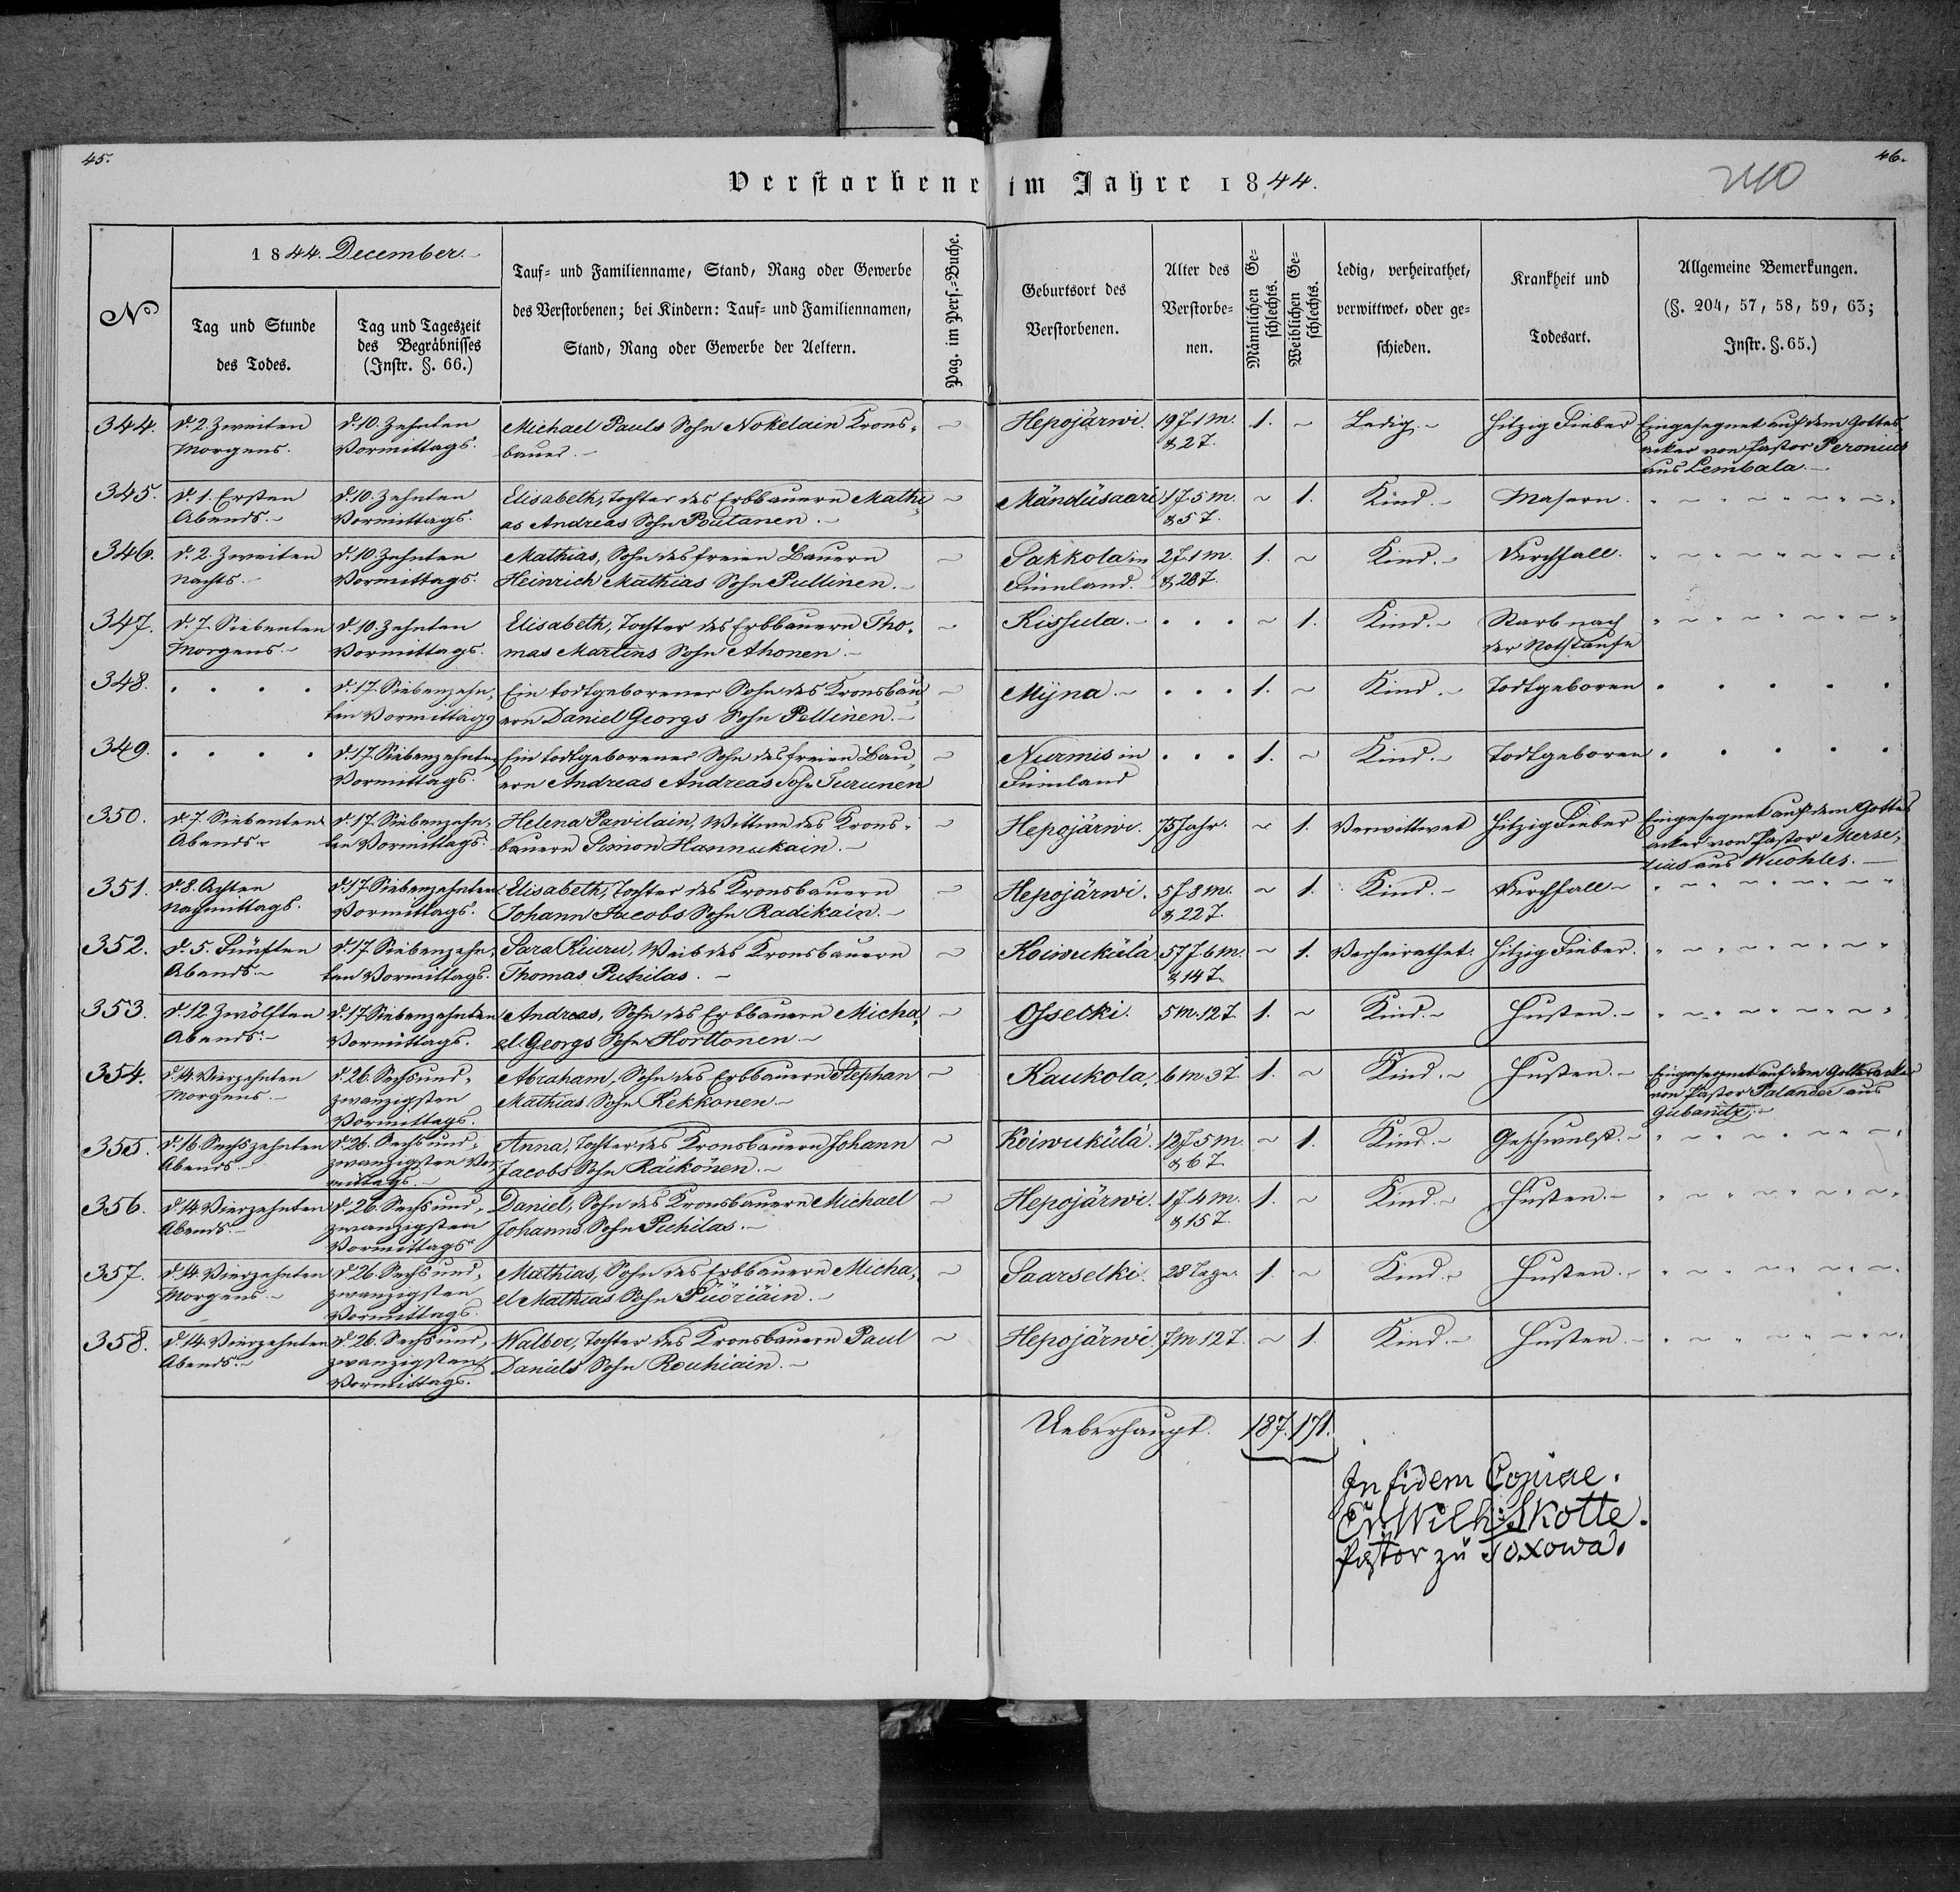 45.
46.
Verstorbene im Jahre 1844.
240
No
1844. December.
Tag und Stunde
des Todes.
Tag und Tageszeit
des Begräbnisses
(Instr. §. 66.)
Tauf= und Familienname, Stand, Rang oder Gewerbe
des Verstorbenen; bei Kindern: Tauf= und Familiennamen,
Stand, Rang oder Gewerbe der Aeltern.
Pag. im Pers.=Buche.
Geburtsort des
Verstorbenen.
Alter des
Verstorbe=
nen.
Männlichen Ge=
schlechts.
Weiblichen Ge=
schlechts.
Ledig, verheirathet,
verwittwet, oder ge=
schieden.
Krankheit und
Todesart.
Allgemeine Bemerkungen.
(§. 204, 57, 58, 59, 63;
Instr. §. 65.)
344. d. 2. Zweiten d. 10. Zehnten Michael Pauls Sohn Nokelain Krons= Hepojärwi. 19 J. 1 M. 1. ~ Ledig.~ Hitzig Fieber Eingesegnet auf dem Gottes
Morgens. Vormittags. bauer.~ & 2 T. acker von Pastor Peronius
aus Lembala.~
345. d. 1. Ersten d. 10. Zehnten Elisabeth, Tochter des Erbbauern Mathi Mändüsaari 1 J. 5 M. ~ 1. Kind.~ Masern.
Abends.~ Vormittags. as Andreas Sohn Poutanen.~ & 5 T.
346. d. 2. Zweiten d. 10. Zehnten Mathias, Sohn des freien Bauern Sakkola in 2 J. 1 M. 1. ~ Kind.~ Durchfall.
Nachts.~ Vormittags. Heinrich Mathias Sohn Pullinen.~ Finnland. & 28 T.
347. d. 7. Siebenten d. 10. Zehnten Elisabeth, Tochter des Erbbauern Tho= Kissula.~ . . . ~ 1. Kind.~ Starb nach
Morgens.~ Vormittags. mas Martins Sohn Ahonen.~ der Nothtaufe
348. . . . . d. 17. Siebenzehn= Ein todtgeborener Sohn des Kronsbau= Mÿna.~ . . . 1. ~ Kind.~ Todtgeboren . . . . .
ten Vormittags ern Daniel Georgs Sohn Pellinen.~
349. . . . . d. 17. Siebenzehnten Ein todtgeborener Sohn des freien Bau= Nurmis in . . . 1. ~ Kind.~ Todtgeboren . . . . .
Vormittags. ern Andreas Andreas Sohn Turunen Finnland
350. d. 7. Siebenten d. 17. Siebenzehn= Helena Pawilain, Wittwe des Krons= Hepojärwi. 75 Jahr. ~ 1. Verwittwet Hitzig Fieber Eingesegnet auf dem Gottes
Abends.~ ten Vormittags. bauern Simon Hannukain.~ acker von Pastor Merze=
zius aus Wuohles.~
351. d. 8. Achten d. 17. Siebenzehnten Elisabeth, Tochter des Kronsbauern Hepojärwi. 5 J. 8 M. ~ 1. Kind.~ Durchfall~
Nachmittags. Vormittags. Johann Jacobs Sohn Radikain.~ & 22 T.
352. d. 5. Fünften d. 17. Siebenzehn= Sara Kiuru, Weib des Kronsbauern Koiwukülä 57 J. 6 M. ~ 1. Verheirathet. Hitzig Fieber.
Abends.~ ten Vormittags. Thomas Puhilas.~ & 14 T.
353. d. 12. Zwölften d. 17. Siebenzehnten Andreas, Sohn des Erbbauern Micha= Osselki. 5 M. 12 T. 1. ~ Kind.~ Husten.~
Abends.~ Vormittags. el Georgs Sohn Horttonen.~
354. d. 14. Vierzehnten d. 26. Sechsund= Abraham, Sohn des Erbbauern Stephan Kaukola, 6 M. 3 T. 1. ~ Kind.~ Husten.~ Eingesegnet auf dem Gottesacker
Morgens.~ zwanzigsten Mathias Sohn Kekkonen.~ von Pastor Palander aus
Vormittags. Gubanitz.~
355. d. 16. Sechszehnten d. 26. Sechsund= Anna, Tochter des Kronsbauern Johann Koiwukülä. 12 J. 5 M. ~ 1. Kind.~ Geschwulst.~
Abends.~ zwanzigsten Vor= Jacobs Sohn Räikönen.~ & 6 T.
mittags.~
356. d. 14. Vierzehnten d. 26. Sechsund= Daniel, Sohn des Kronsbauern Michael Hepojärwi. 1 J. 4 M. 1. ~ Kind.~ Husten.~
Abends.~ zwanzigsten Johanns Sohn Puhilas.~ & 15 T.
Vormittags.
357. d. 14. Vierzehnten d. 26. Sechsund= Mathias, Sohn des Erbbauern Micha= Saarselki. 28 Tage. 1. ~ Kind.~ Husten.~
Morgens.~ zwanzigsten el Mathias Sohn Püöriäin.~
Vormittags.
358. d. 14. Vierzehnten d. 26. Sechsund= Walbor, Tochter des Kronsbauern Paul Hepojärwi. 7 M. 12 T. ~ 1. Kind.~ Husten.~
Abends.~ zwanzigsten Daniels Sohn Rouhiain.~
Vormittags.
Ueberhaupt. 187. 171.
In fidem Copiae.
Er. Wilh: Skotte.
Pastor zu Toxowa.